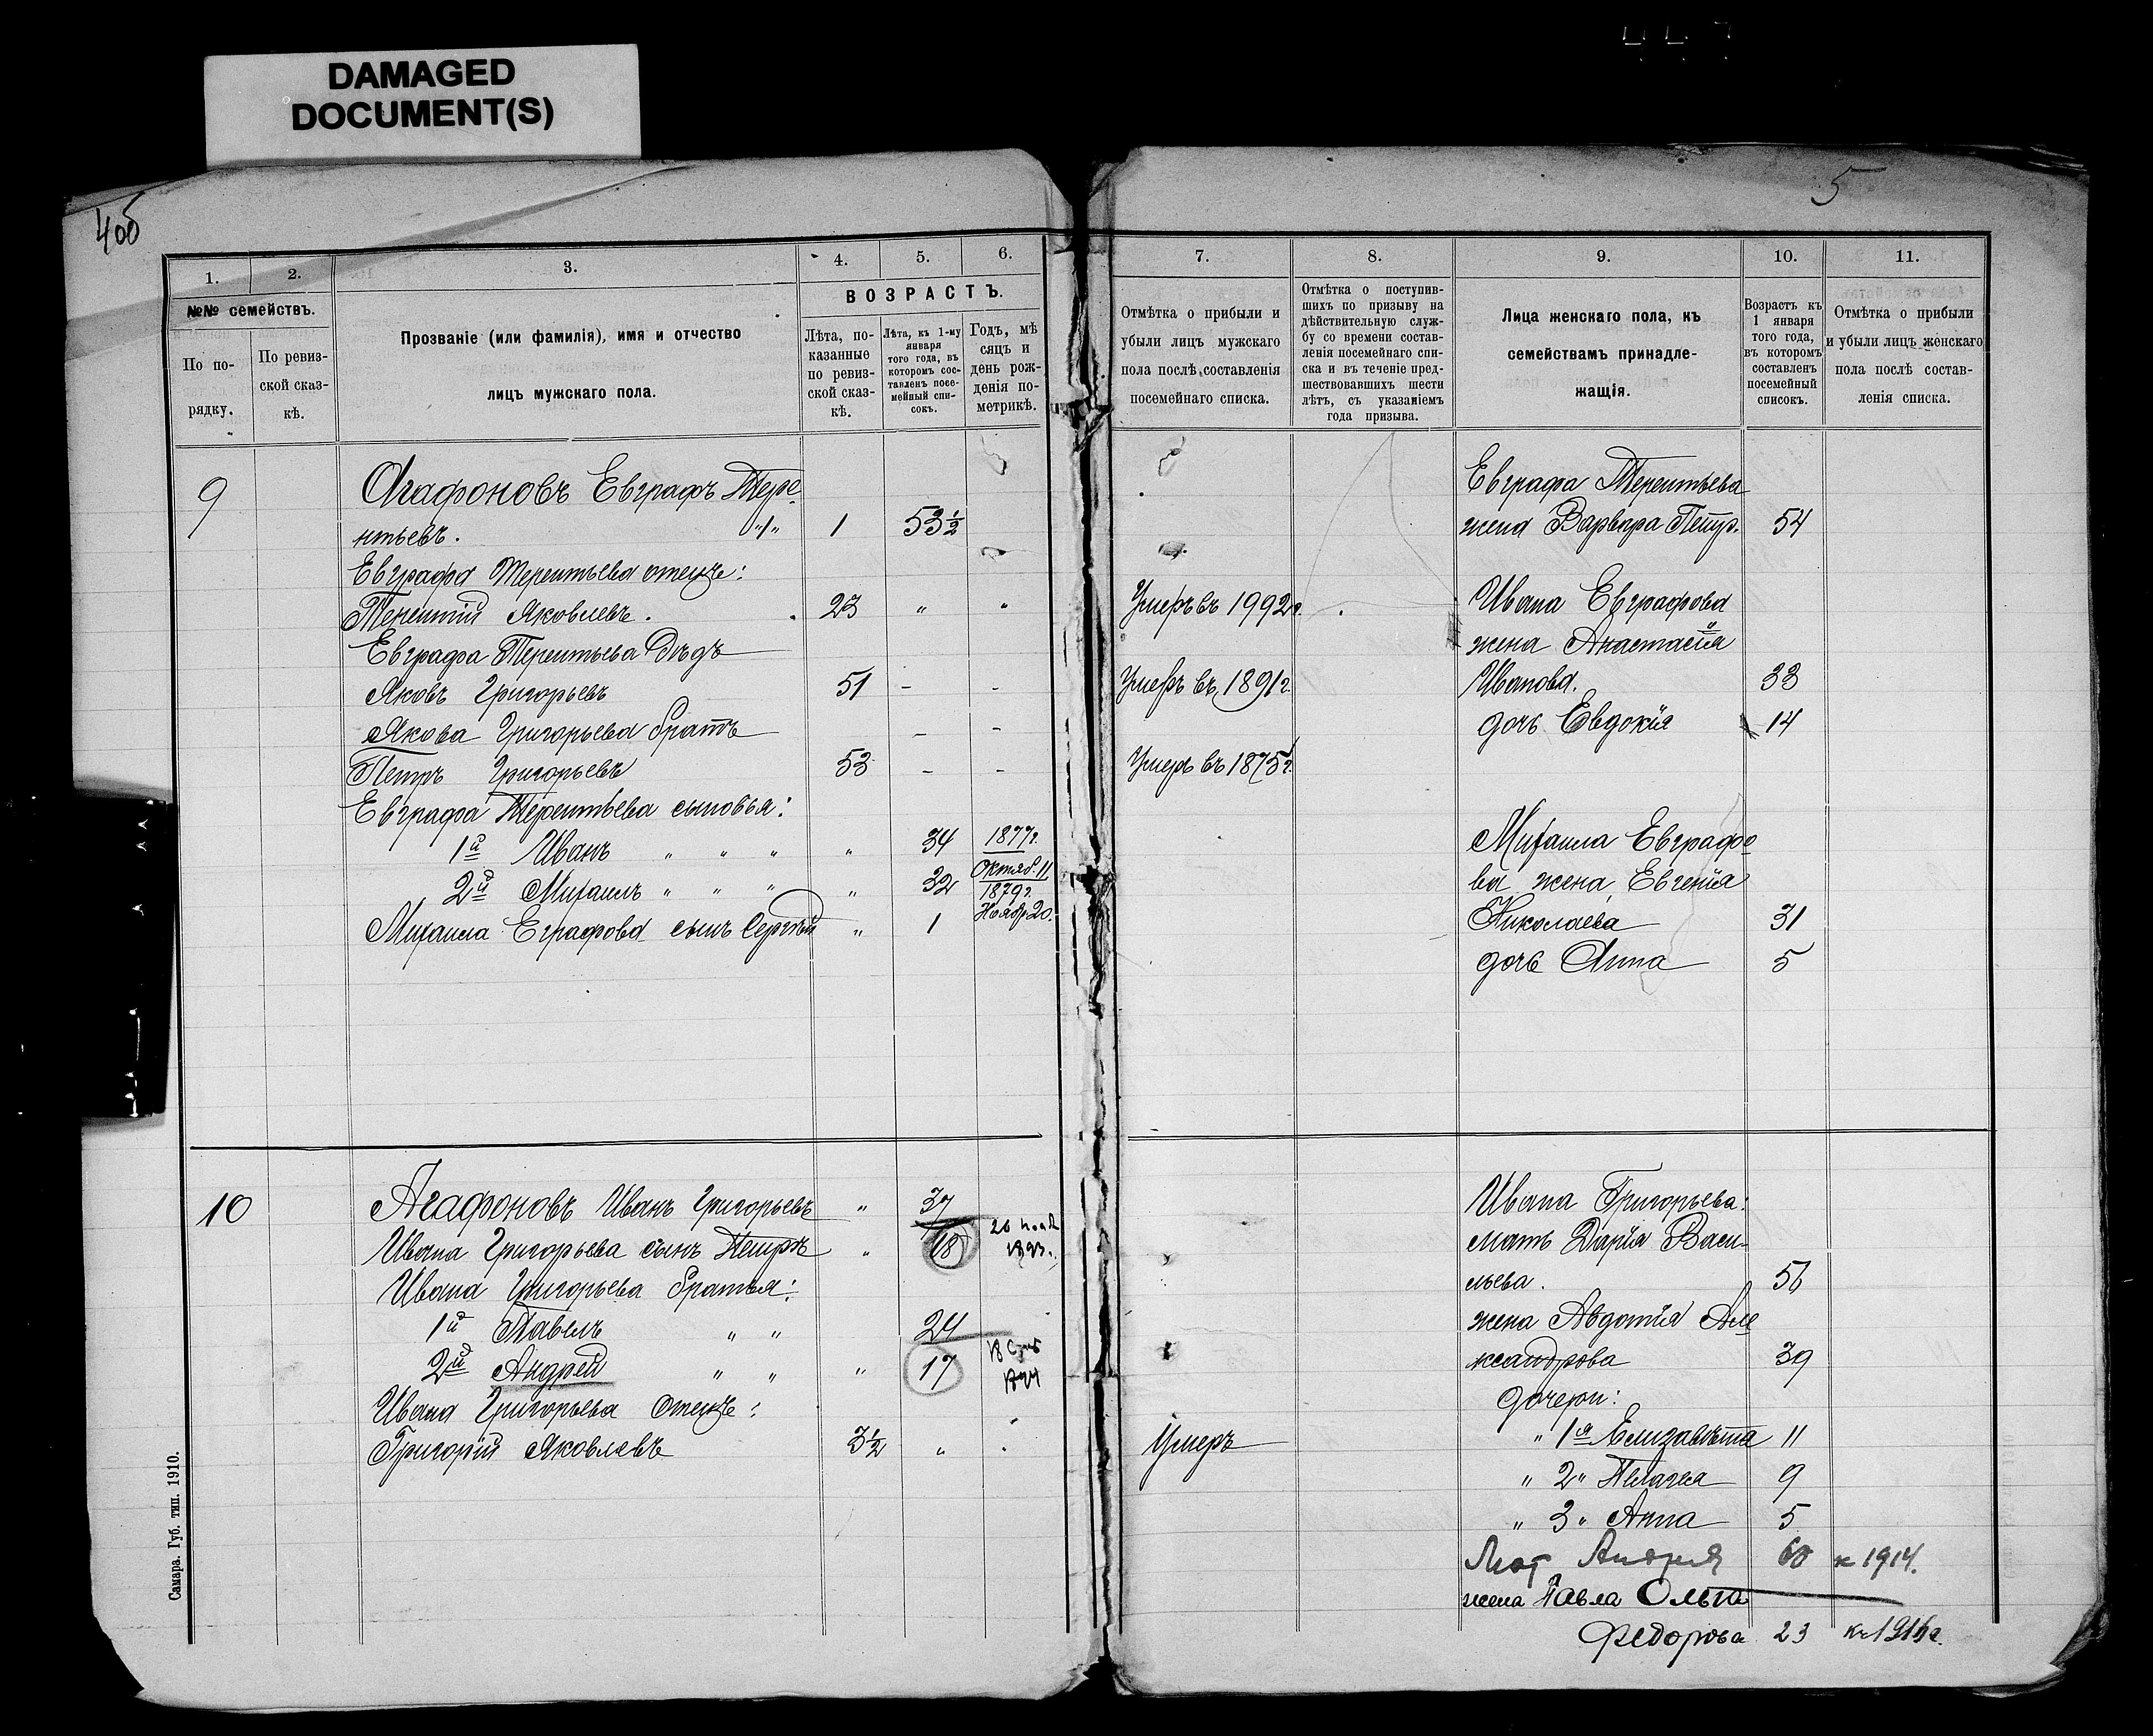 DAMAGED
DOCUMENT(S)
4об
5
1.
2.
3.
4.
5.
6.
№№ семействъ.
По порядку.
По ревиз-
ской сказ-
кѣ.
Прозваніе (или фамилія), имя и отчество
лицъ мужскаго пола.
ВОЗРАСТЪ.
Лѣта, по-
казанные
по ревиз-
ской сказ-
кѣ.
Лѣта, къ 1-му
января
того года, въ
которомъ сос-
тавленъ посе-
мейный спи-
сокъ.
Годъ, мѣ
сяцъ и
день рож-
денія по-
метрикѣ.
7.
8.
9.
10.
11.
Отмѣтка о прибыли и
убыли лицъ мужскаго
пола послѣ составленія
посемейнаго списка.
Отмѣтка о поступив-
шихъ по призыву на
дѣйствительную служ-
бу со времени состав-
ленія посемейнаго спи-
ска и въ теченіе пред-
шествовавшихъ шести
лѣтъ, съ указаніемъ
года призыва.
Лица женскаго пола, къ
семействамъ принадле-
жащія.
Возрастъ къ
1 января
того года,
въ которомъ
составленъ
посемейный
списокъ.
Отмѣтка о прибыли
и убыли лицъ женскаго
пола послѣ состав-
ленія списка.
9 Агафоновъ Евграфъ Тере-
нтьевъ. 1 53½
Евграфа Терентьева отецъ:
Терентій Яковлевъ. 23 " " Умеръ въ 1992г.
Евграфа Терентьева дѣдъ
Яковъ Григорьевъ 51 - - Умеръ въ 1891г.
Якова Григорьева братъ - -
Петръ Григорьевъ 53 - - Умеръ въ 1875г.
Евграфа Терентьева сыновья:
1й Иванъ " " " " 34 1877г.
Октяб. 11
2й Михаилъ " " " " 32 1879г.
Нояб. 20.
Михаила Еграфова сынъ Сергѣй " 1
Евграфа Терентьева
жена Варвара Петр. 54
Ивана Евграфова
жена Анастасія
Иванова. 33
дочь Евдокія 14
Михаила Евграфо
ва жена Евгенія
Николаева 31
дочь Анна 5
10 Агафоновъ Иванъ Григорьевъ " 37
Ивана Григорьева сынъ Петръ " 18 26 нояб
1893.
Ивана Григорьева братья:
1й Павелъ " " 24
2й Андрей " " " 17 18
1894
Ивана Григорьева отецъ:
Григорій Яковлевъ 3½ " " Умеръ
Ивана Григорьева:
мать Дарія Васи-
льева. 56
жена Авдотія Але
ксандрова 39
дочери:
" 1я Елизавѣта 11
" 2" Пелагея 9
" 3" Анна 5
Андрея 60 к 1914.
жена Павла Ольга
Федорова 23
Самара. Губ. тип. 1910.